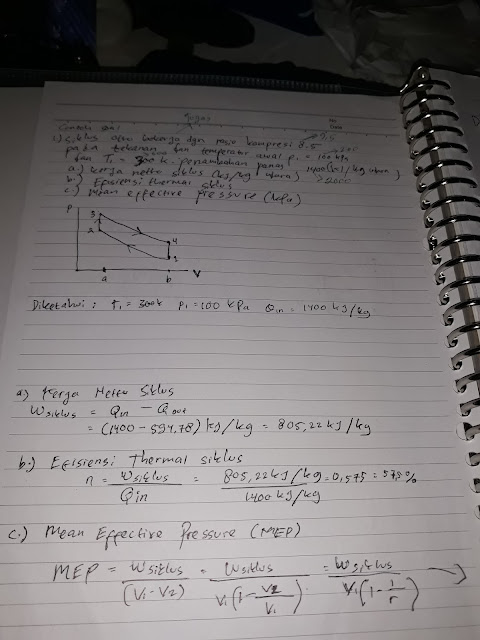 Contoh soal
1) Siklus otto bekerja dgn rasio kompresi 8.5
pada tekanan dan temperatur awal p₁ = 100 kPa
dan T₁ = 300 K. penambahan panas 1400 (kJ/kg udara)
a.) kerja netto siklus (kJ/kg udara)
b.) Efisiensi thermal siklus
c.) Mean effective pressure (kPa)
P
3
2
4
1
a b V
Diketahui : T₁ = 300K P₁ = 100 kPa Qin = 1400 kJ/kg
a) Kerja Netto Siklus
Wsiklus = Qin - Qout
= (1400 - 594,78) kJ/kg = 805,22 kJ/kg
b.) Efisiensi Thermal siklus
η = Wsiklus / Qin = 805,22 kJ/kg / 1400 kJ/kg = 0,575 = 57,5 %
c.) Mean Effective Pressure (MEP)
MEP = Wsiklus / (V1 - V2) = Wsiklus / V1 (1 - V2/V1) = Wsiklus / V1 (1 - 1/r) →